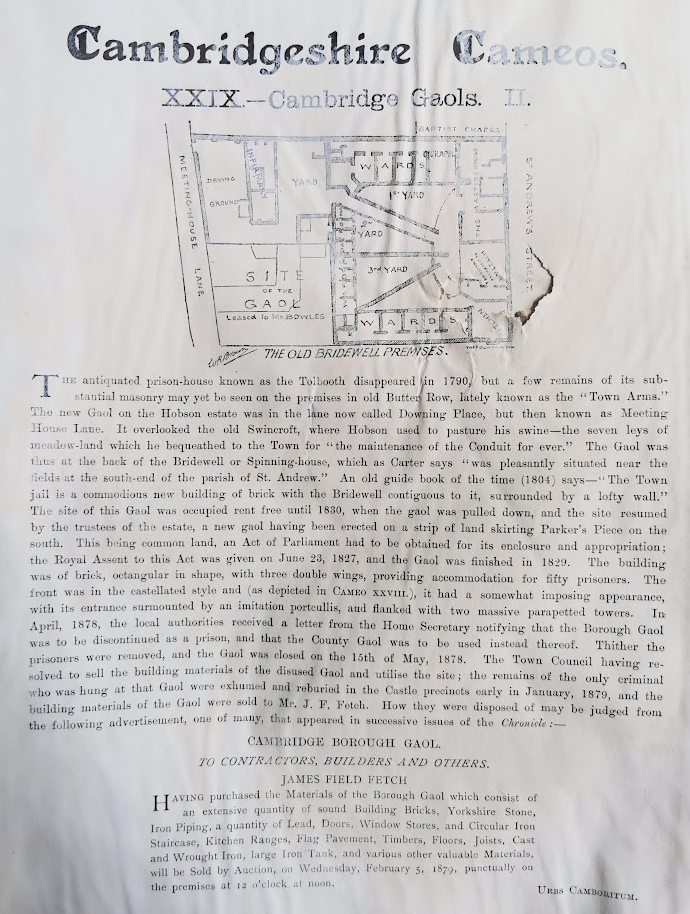 Cambridgeshire Cameos.
XXIX.—Cambridge Gaols. II.
BAPTIST CHAPEL
MEETING-HOUSE LANE
DRYING
GROUND
INFIRMARY
YARD
WARDS
CHAPEL
1ST YARD
2ND
YARD
3RD YARD
S^T ANDREW'S STREET
SITE
OF THE
GAOL
LEASED TO Mr BOWLES
WARDS
KITCHEN
THE OLD BRIDEWELL PREMISES.
THE antiquated prison-house known as the Tolbooth disappeared in 1790, but a few remains of its sub-
stantial masonry may yet be seen on the premises in old Butter Row, lately known as the “Town Arms.”
The new Gaol on the Hobson estate was in the lane now called Downing Place, but then known as Meeting
House Lane. It overlooked the old Swincroft, where Hobson used to pasture his swine—the seven leys of
meadow-land which he bequeathed to the Town for “the maintenance of the Conduit for ever.” The Gaol was
thus at the back of the Bridewell or Spinning-house, which as Carter says “was pleasantly situated near the
fields at the south-end of the parish of St. Andrew.” An old guide book of the time (1804) says—“The Town
jail is a commodious new building of brick with the Bridewell contiguous to it, surrounded by a lofty wall.”
The site of this Gaol was occupied rent free until 1830, when the gaol was pulled down, and the site resumed
by the trustees of the estate, a new gaol having been erected on a strip of land skirting Parker's Piece on the
south. This being common land, an Act of Parliament had to be obtained for its enclosure and appropriation;
the Royal Assent to this Act was given on June 23, 1827, and the Gaol was finished in 1829. The building
was of brick, octangular in shape, with three double wings, providing accommodation for fifty prisoners. The
front was in the castellated style and (as depicted in CAMEO XXVIII.), it had a somewhat imposing appearance,
with its entrance surmounted by an imitation portcullis, and flanked with two massive parapetted towers. In
April, 1878, the local authorities received a letter from the Home Secretary notifying that the Borough Gaol
was to be discontinued as a prison, and that the County Gaol was to be used instead thereof. Thither the
prisoners were removed, and the Gaol was closed on the 15th of May, 1878. The Town Council having re-
solved to sell the building materials of the disused Gaol and utilise the site; the remains of the only criminal
who was hung at that Gaol were exhumed and reburied in the Castle precincts early in January, 1879, and the
building materials of the Gaol were sold to Mr. J. F. Fetch. How they were disposed of may be judged from
the following advertisement, one of many, that appeared in successive issues of the Chronicle:—
CAMBRIDGE BOROUGH GAOL.
TO CONTRACTORS, BUILDERS AND OTHERS.
JAMES FIELD FETCH
HAVING purchased the Materials of the Borough Gaol which consist of
an extensive quantity of sound Building Bricks, Yorkshire Stone,
Iron Piping, a quantity of Lead, Doors, Window Stores, and Circular Iron
Staircase, Kitchen Ranges, Flag Pavement, Timbers, Floors, Joists, Cast
and Wrought Iron, large Iron Tank, and various other valuable Materials,
will be Sold by Auction, on Wednesday, February 5, 1879, punctually on
the premises at 12 o'clock at noon.
URBS CAMBORITUM.